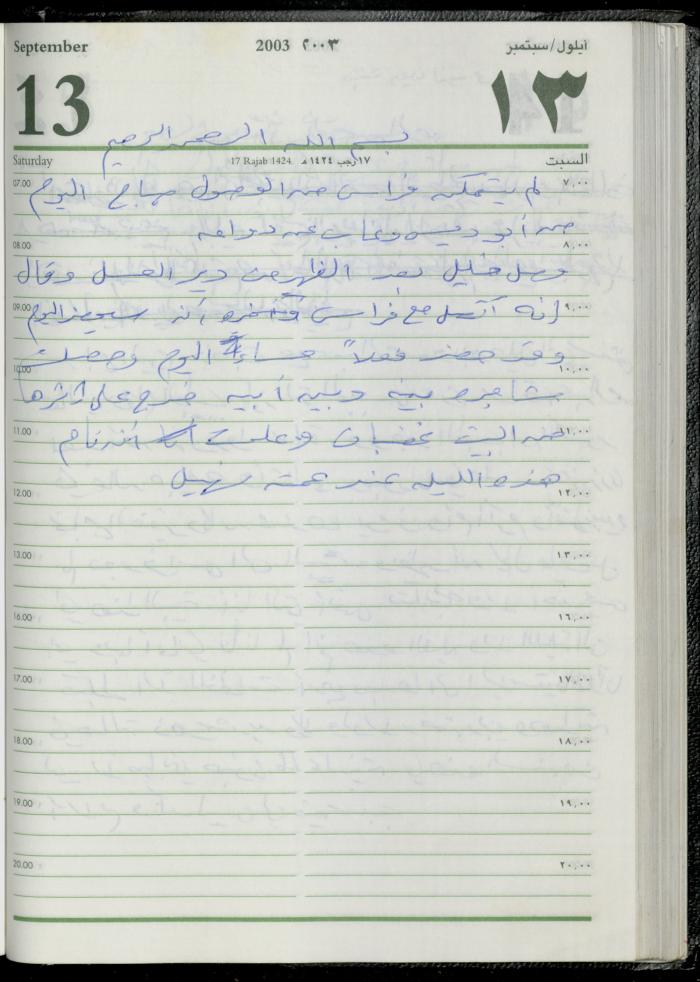 September 2003 ٢٠٠٣ أيلول/سبتمبر
13 ١٣
بسم الله الرحمن الرحيم
Saturday 17 Rajab 1424 ١٧ رجب ١٤٢٤ هـ السبت
07.00 لم يتمكن فراس من الوصول صباح اليوم ٧,٠٠
من أبو ديس وغاب عن دوامه
08.00 ٨,٠٠
وصل خليل بعد الظهر من دير العسل وقال
09.00 إنه اتصل مع فراس وأخبره أنه سيحضر اليوم ٩,٠٠
وقد حضر فعلاً مساء اليوم وحصلت
10.00 ١٠,٠٠
مشاجرة بينه وبين أبيه خرج على اثرها
11.00 من البيت غضبان وعلمت أنه نام ١١,٠٠
هذه الليلة عند عمته نهيل
12.00 ١٢,٠٠
13.00 ١٣,٠٠
16.00 ١٦,٠٠
17.00 ١٧,٠٠
18.00 ١٨,٠٠
19.00 ١٩,٠٠
20.00 ٢٠,٠٠